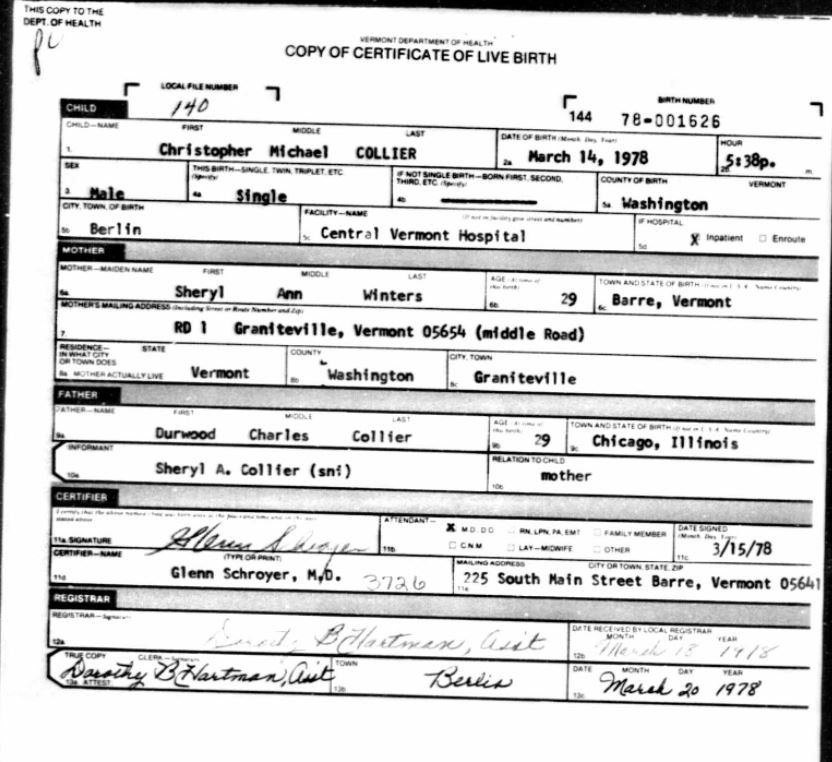 THIS COPY TO THE
DEPT. OF HEALTH
VERMONT DEPARTMENT OF HEALTH
COPY OF CERTIFICATE OF LIVE BIRTH
LOCAL FILE NUMBER
140
BIRTH NUMBER
144 78-001626
CHILD
CHILD—NAME FIRST MIDDLE LAST
1. Christopher Michael COLLIER
DATE OF BIRTH (Month, Day, Year)
2a March 14, 1978
HOUR
2b 5:38p. m.
SEX
3. Male
THIS BIRTH—SINGLE, TWIN, TRIPLET, ETC. (Specify)
4a Single
IF NOT SINGLE BIRTH—BORN FIRST, SECOND,
THIRD, ETC. (Specify)
4b
COUNTY OF BIRTH VERMONT
5a Washington
CITY, TOWN, OF BIRTH
5b Berlin
FACILITY—NAME (If not in facility give street and number)
5c Central Vermont Hospital
IF HOSPITAL
5d X Inpatient Enroute
MOTHER
MOTHER—MAIDEN NAME FIRST MIDDLE LAST
6a Sheryl Ann Winters
AGE (At time of this birth)
6b 29
TOWN AND STATE OF BIRTH (If not in U.S.A. Name Country)
6c Barre, Vermont
MOTHER'S MAILING ADDRESS (Including Street or Route Number and Zip)
7. RD 1 Graniteville, Vermont 05654 (middle Road)
RESIDENCE— STATE
IN WHAT CITY
OR TOWN DOES
8a MOTHER ACTUALLY LIVE Vermont
COUNTY
8b Washington
CITY, TOWN
8c Graniteville
FATHER
FATHER—NAME FIRST MIDDLE LAST
9a Durwood Charles Collier
AGE (At time of this birth)
9b 29
TOWN AND STATE OF BIRTH (If not in U.S.A. Name Country)
9c Chicago, Illinois
INFORMANT
10a Sheryl A. Collier (sni)
RELATION TO CHILD
10b mother
CERTIFIER
I certify that the above named child was born alive at the place and time and on the date
stated above
11a SIGNATURE Glenn Schroyer
ATTENDANT—
11b X M.D. DO RN, LPN, PA, EMT FAMILY MEMBER
C.N.M LAY-MIDWIFE OTHER
DATE SIGNED
(Month, Day, Year)
11c 3/15/78
CERTIFIER—NAME (TYPE OR PRINT)
11d Glenn Schroyer, M.D. 3726
MAILING ADDRESS CITY OR TOWN, STATE, ZIP
11e 225 South Main Street Barre, Vermont 05641
REGISTRAR
REGISTRAR—Signature
12a Dorothy B Hartman, Asst
DATE RECEIVED BY LOCAL REGISTRAR
MONTH DAY YEAR
12b March 18 1978
TRUE COPY CLERK—Signature
13a ATTEST Dorothy B Hartman, Asst
TOWN
13b Berlin
DATE MONTH DAY YEAR
13c March 20 1978